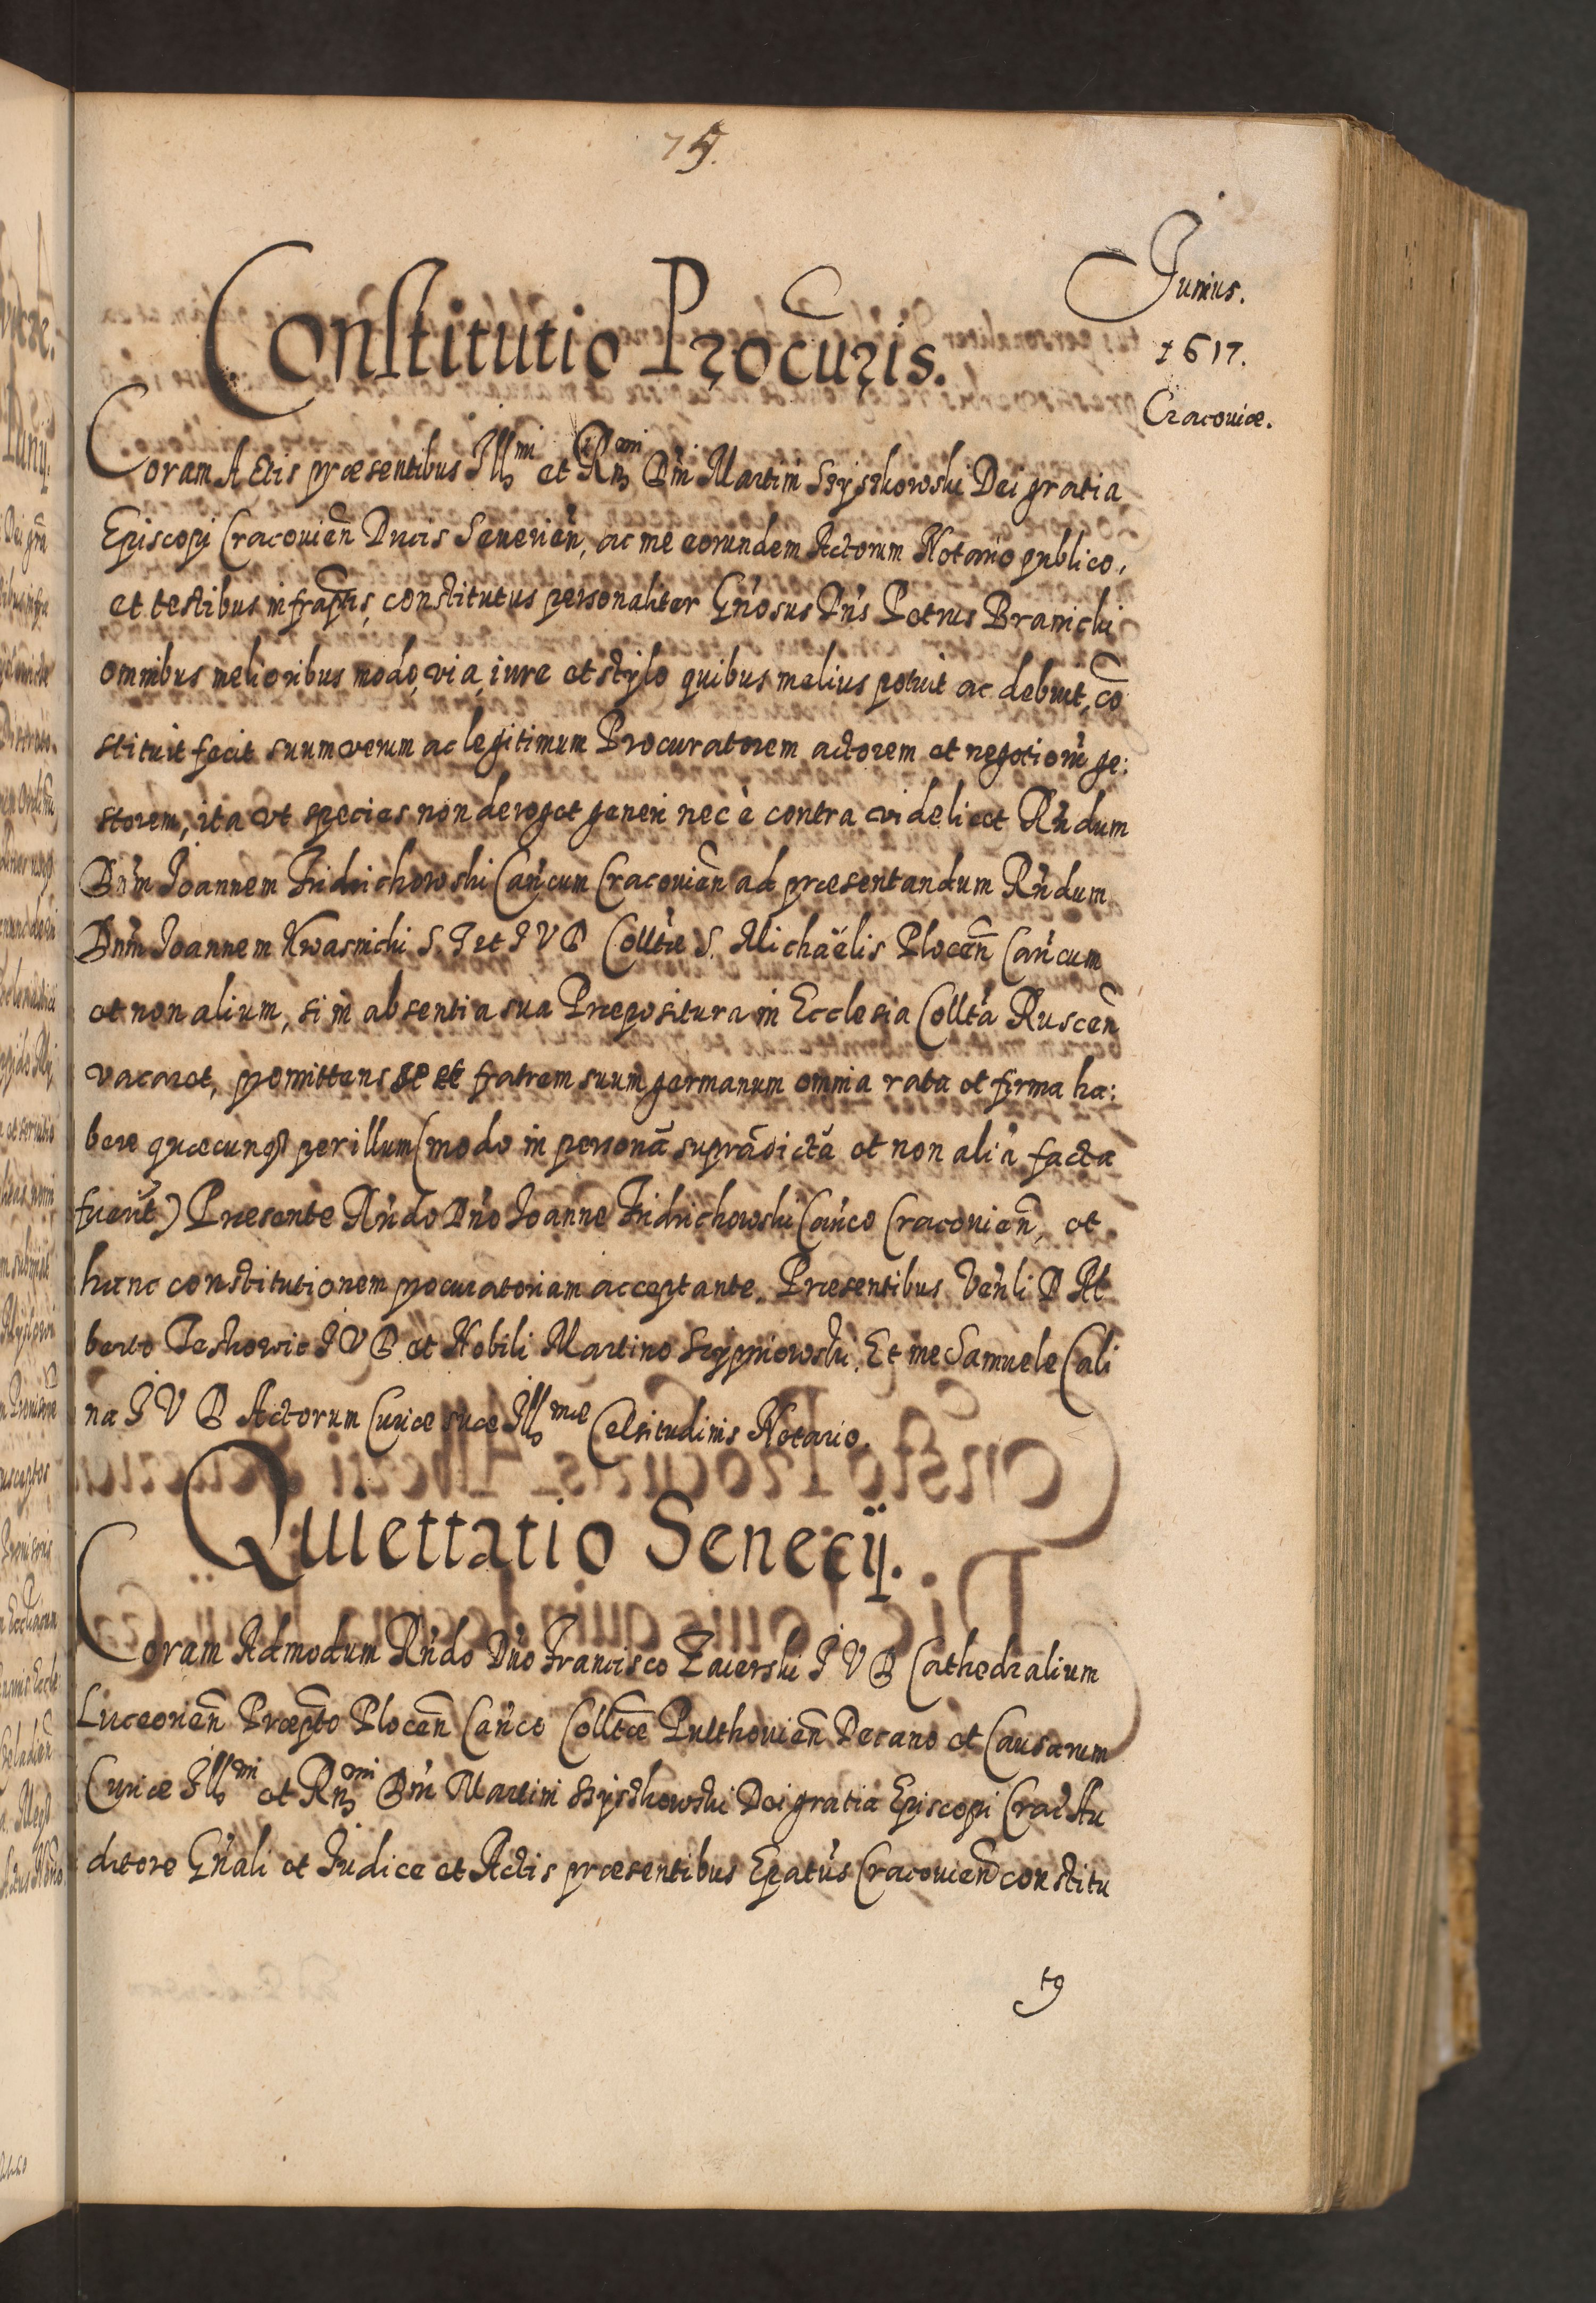 75.
Junius.
1617.
Cracouiæ.
Constitutio Procuris.
Coram Actis præsentibus Illmi et Rmi Dni Martini Szyszkowski Dei gratia
Episcopi Cracovien Ducis Severien, ac me eorundem Actorum Notario publico,
et testibus infraptis, constitutus personaliter Gnosus Dns Petrus Branicki
omnibus melioribus modo, via, iure et stylo quibus melius potuit ac debuit, co
stituit fecit suum verum ac legitimum Procuratorem actorem et negotiorũ ge:
storem, ita vt species non deroget generi nec è contra videlicet Rndum
Dnm Joannem Fridrichowski Cancum Cracovien ad præsentandum Rndum
Dnm Joannem Kwasnicki S. T et J V D Colltæ S. Michaëlis Plocen Cancum
et non alium, si in absentia sua Præpositura in Ecclesia Collta Ruscen
vacaret, promittens se et fratrem suum germanum omnia rata et firma ha:
bere quæcunq per illum (modo in personã suprãdictã et non aliã facta
fuerit) Præsente Rndo Dno Joanne Fridrichowski Canco Cracovien, et
hanc constitutionem procuratoriam acceptante. Præsentibus Venli D Al
berto Teskowic J V D et Nobili Martino Szypniowski. Et me Samuele Cali
na J V D Actorum Curiæ suæ Illmæ Celsitudinis Notario.
Quiettatio Senecij.
Coram Admodum Rndo Dno Francisco Zaierski J V D Cathedralium
Luceorien Præpto Plocen Canco Colltæ Pulthovien Decano et Causarum
Curiæ Illmi et Rmi Dni Martini Szyszkowski Dei gratia Episcopi Crac Au
ditore Gnali et Judice et Actis præsentibus Epatus Cracovien constitu
t9